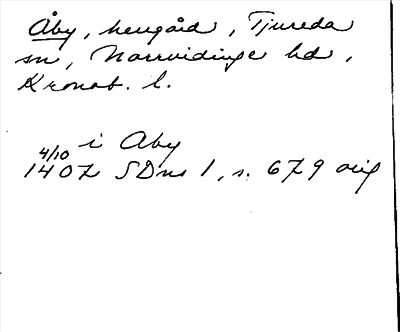 Åby, herrgård, Tjureda
sn, Norrvidinge hd,
Kronob. l.
i Aby
4/10
1407 SDns 1, s. 679 orig